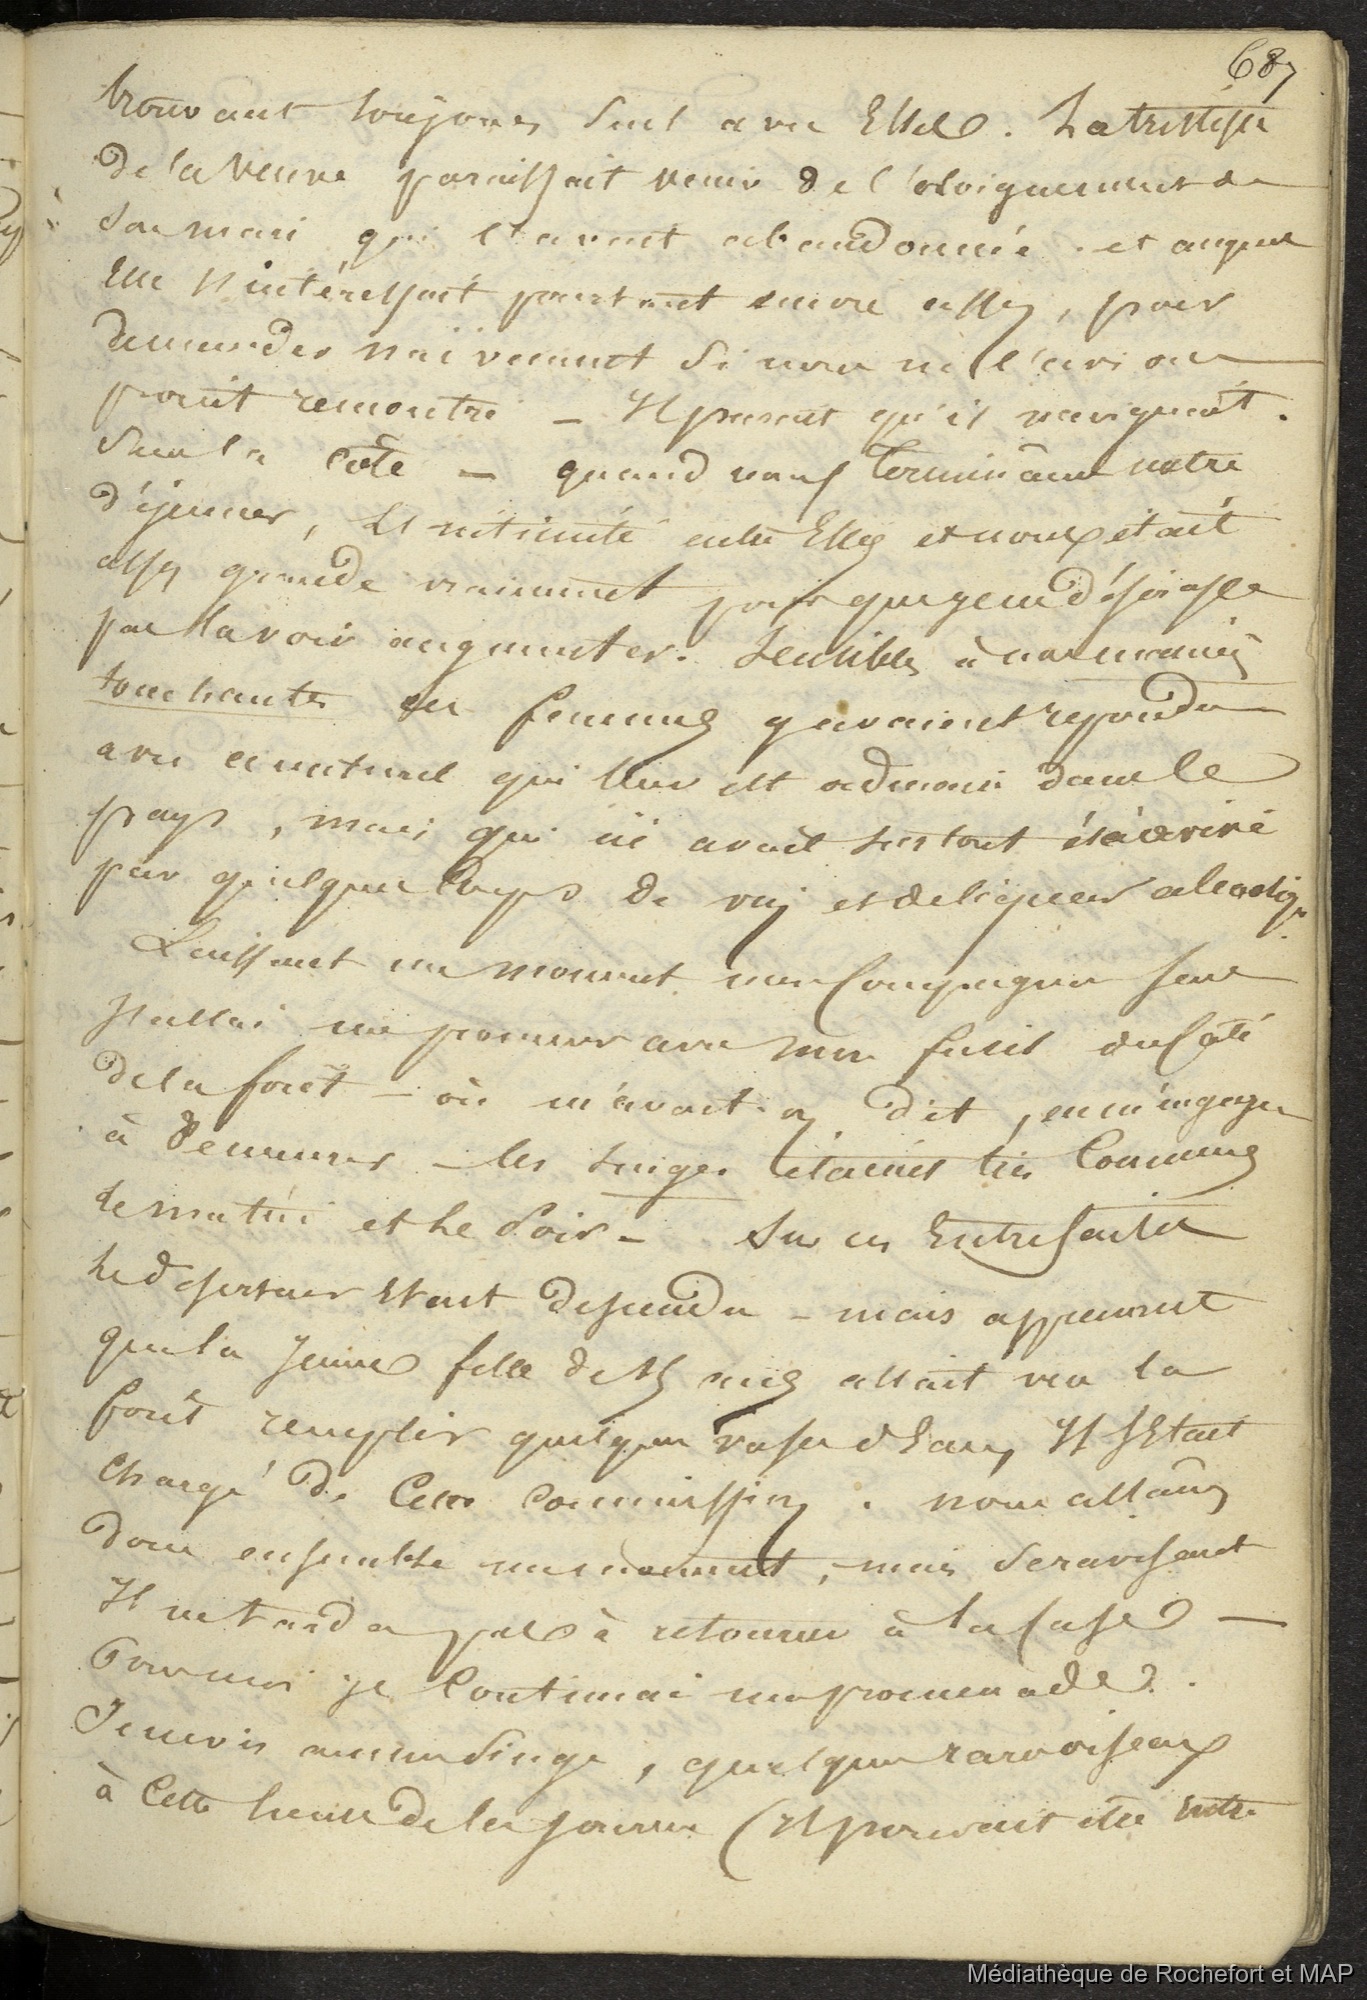 687
trouvant toujours seul avec Elle. La tristesse
de la veuve paraissait venir de l'éloignement de
son mari qui l'avait abandonnée. et auquel
Elle s'intéressait pourtant encore assez, pour
demander naïvement si nous ne l'avions
point rencontré — Il parait qu'il naviguait.
sur la côte — quand nous terminâmes notre
déjeuner, L'intimité entre Elles et nous était
assez grande vraiment pour que je ne désirasse
pas la voir augmenter. Sensibles à nos manières
touchantes ces femmes y avaient repondu
avec ce naturel qui leur est admis dans le
pays, mais qui ici avait surtout été avivé
par quelques coups de vin et de liqueur alcoolique.
Laissant un moment mon compagnon seul
j'allai me promener avec mon fusil du côté
de la forêt — où m'avait-on dit, en m'engageant
à  — les singes étaient très communs
le matin et le soir — Sur ces Entrefaites
le déserteur était descendu — mais apprenant
que la jeune fille de  allait vers la
forêt remplir quelques vases d'Eau, Il s'Etait
chargé de cette commission. nous allâmes
donc ensemble un moment, mais se ravisant
Il ne tarda pas à retourner à la case —
Pour moi je continuai ma promenade.
Je ne vis aucun singe, quelques rares oiseaux
à cette heure de la journée (Il pouvait être entre
Médiathèque de Rochefort et MAP